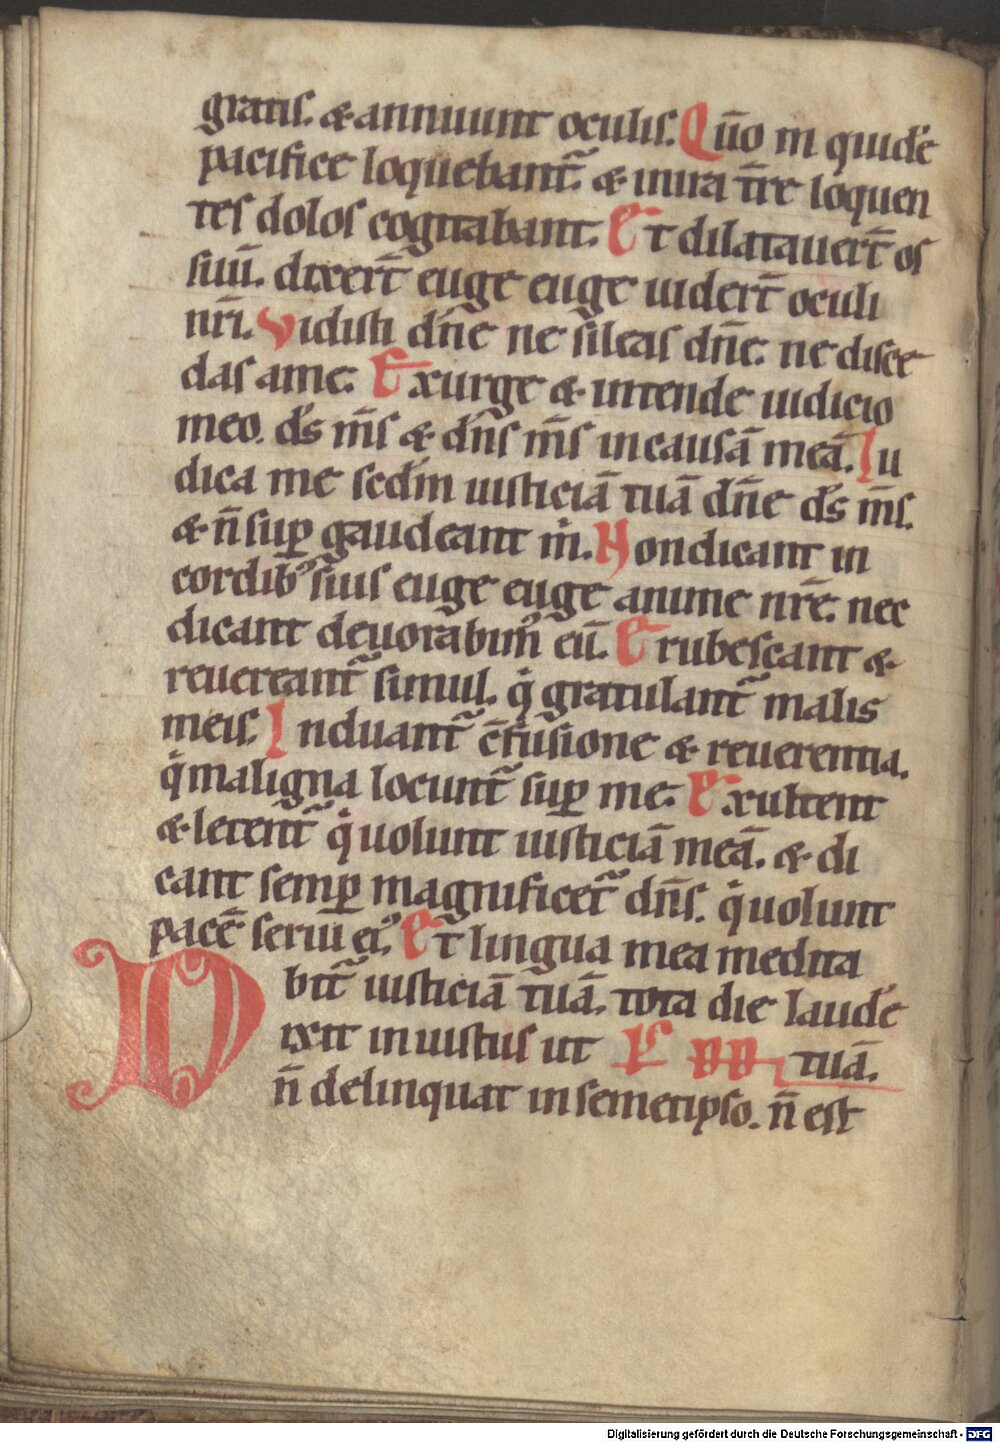 gratis. & annuunt oculis. Qm̄o m quidē
pacifice loquebant̃. & in ira tr̄e loquen
tes dolos cogitabant. Et dilatauert̄ os
suū. dixert̄ euge euge uidert̄ oculi
nr̄i. Vidisti dn̄e ne sileas dn̄e. ne disce
das a me. Exurge & intende iudicio
meo. ds̄ m̄s & dn̄s m̄s in causā meā. Iu
dica me sed̄m iusticiā tuā dn̄e ds̄ m̄s.
& n̄ suꝑ gaudeant m̉. Non dicant in
cordib᷒ suis euge euge anime nr̄e. nec
dicant deuorabim᷒ eū. Erubescant &
reuereant̃ simul. q̉ gratulant̃ malis
meis. Induant̃ c̄fusione & reuerentia.
q̉ maligna locunt̃ suꝑ me. Exultent
& letent̃ q̉ uolunt iusticiā meā. & di
cant semꝑ magnificet̃ dn̄s. q̉ uolunt
pacē serui ei᷒. Et lingua mea medita
bit̃ iusticiā tuā. tota die laudē
Dixit iniustus ut PS tuā.
n̄ delinquat in semetipso. n̄ est
Digitalisierung gefördert durch die Deutsche Forschungsgemeinschaft - DFG